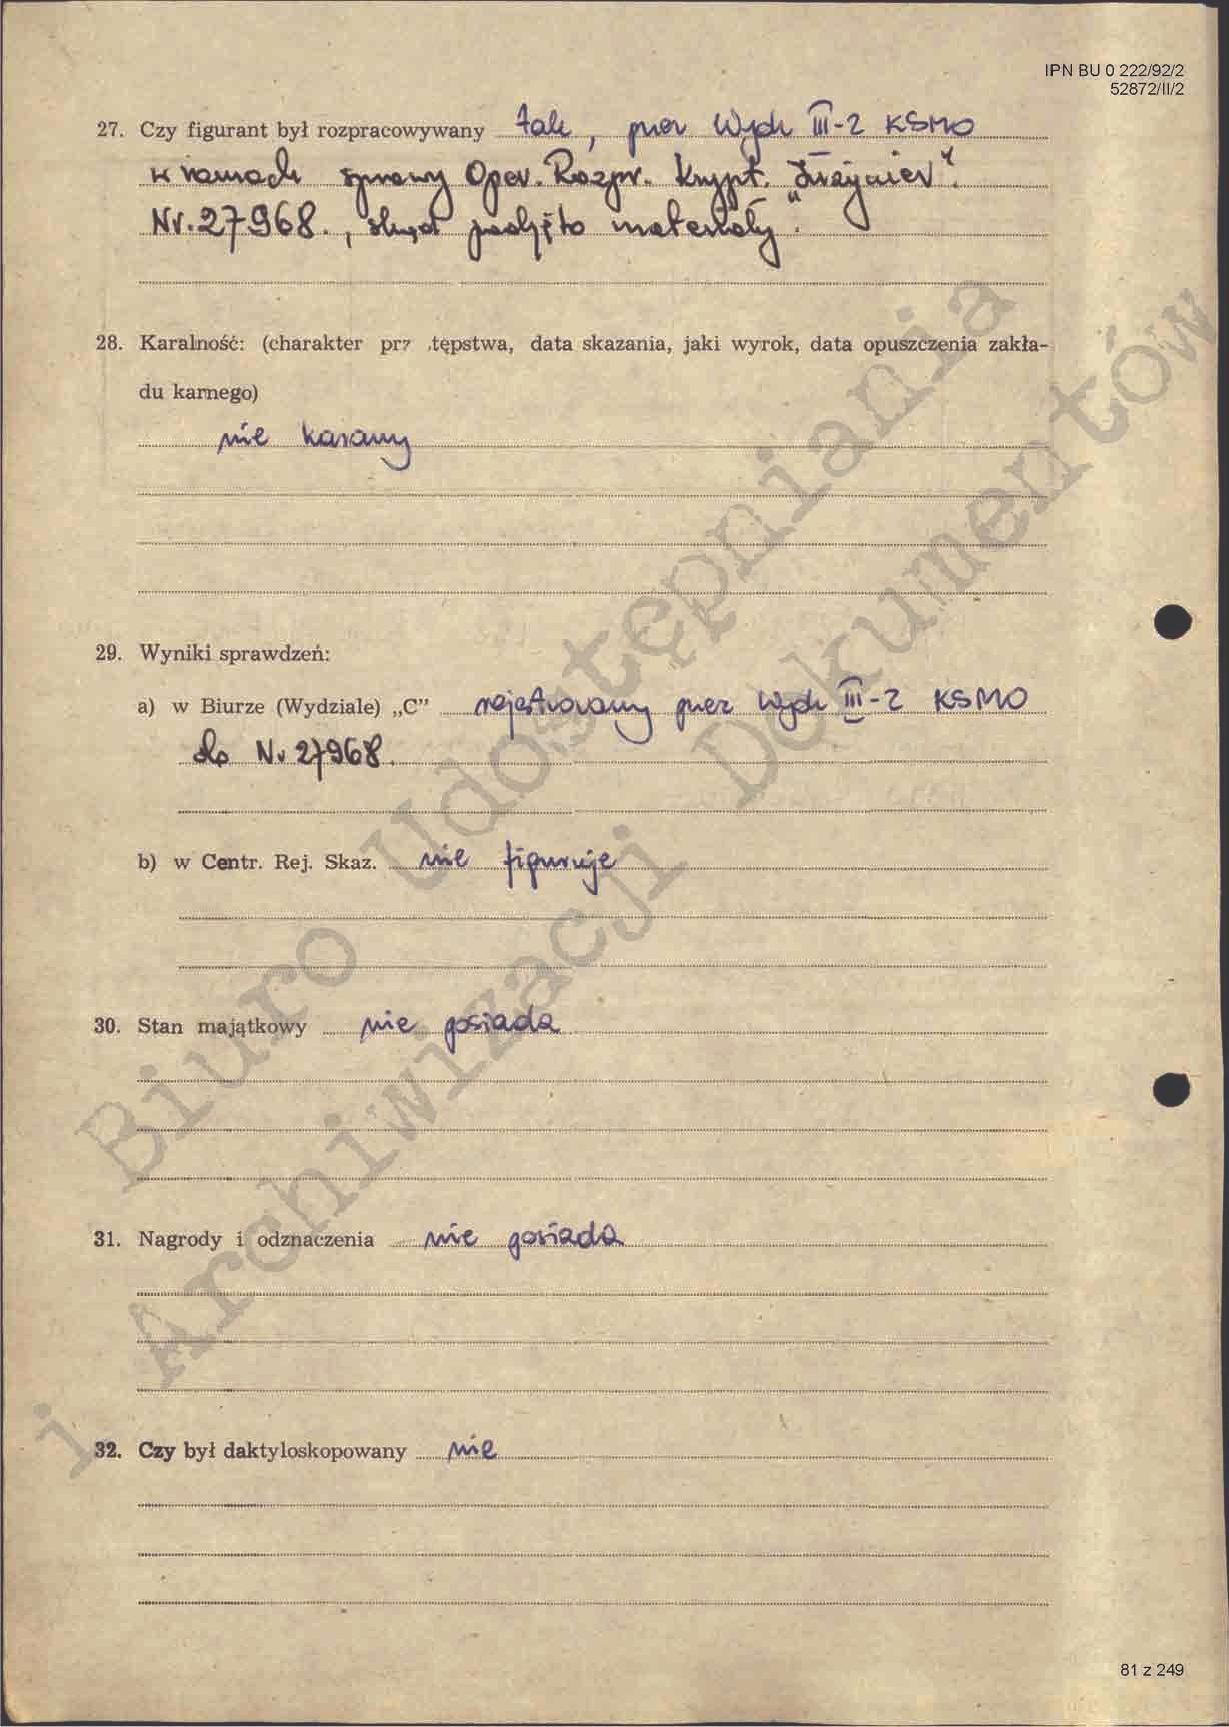 IPN BU 0 222/92/2
52872/II/2
27. Czy figurant był rozpracowywany tak, przez Wydz III-2 KSMO
w ramach sprawy Oper. Rozpr. krypt. „Inżynier”.
Nr. 27968., skąd podjęto materiały.
28. Karalność: (charakter prz .tępstwa, data skazania, jaki wyrok, data opuszczenia zakła-
du karnego)
nie karany
29. Wyniki sprawdzeń:
a) w Biurze (Wydziale) „C” rejestrowany przez Wydz III-2 KSMO
do Nr 27968.
b) w Centr. Rej. Skaz. nie figuruje
30. Stan majątkowy nie posiada
31. Nagrody i odznaczenia nie posiada
32. Czy był daktyloskopowany nie
Biuro Udostępniania
i Archiwizacji Dokumentów
81 z 249